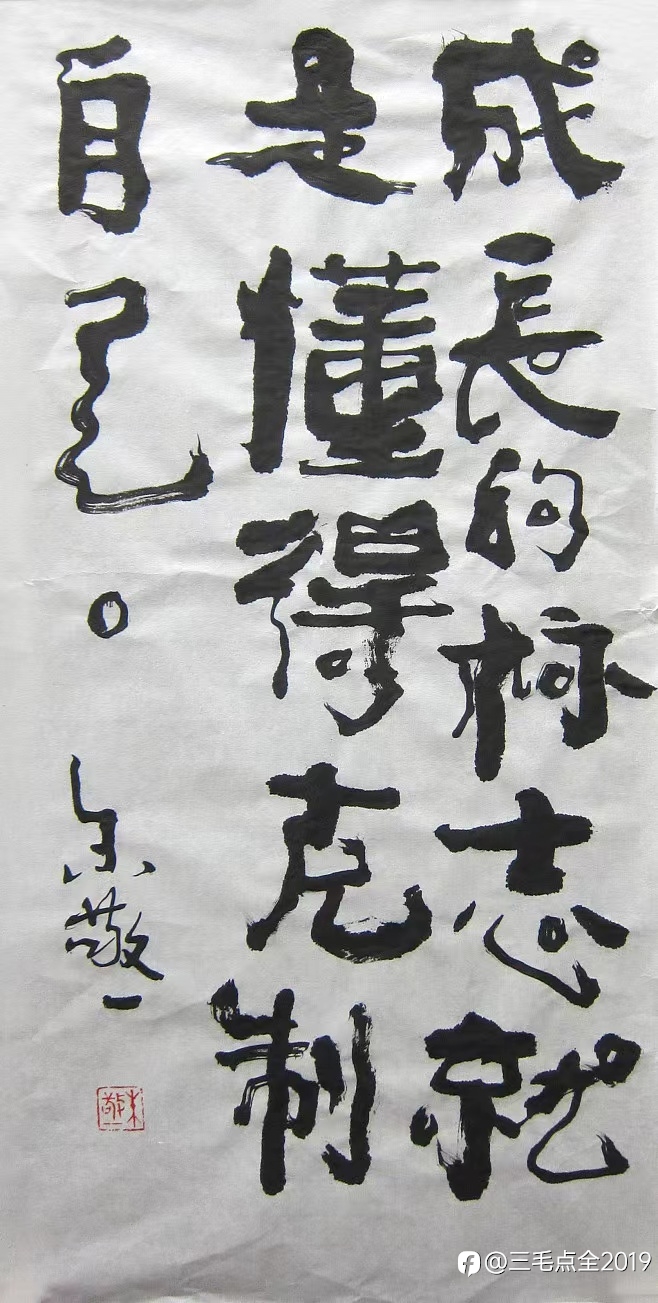 成長的标志就
是懂得克制
自己。
朱敬一
朱敬一
@三毛点全2019